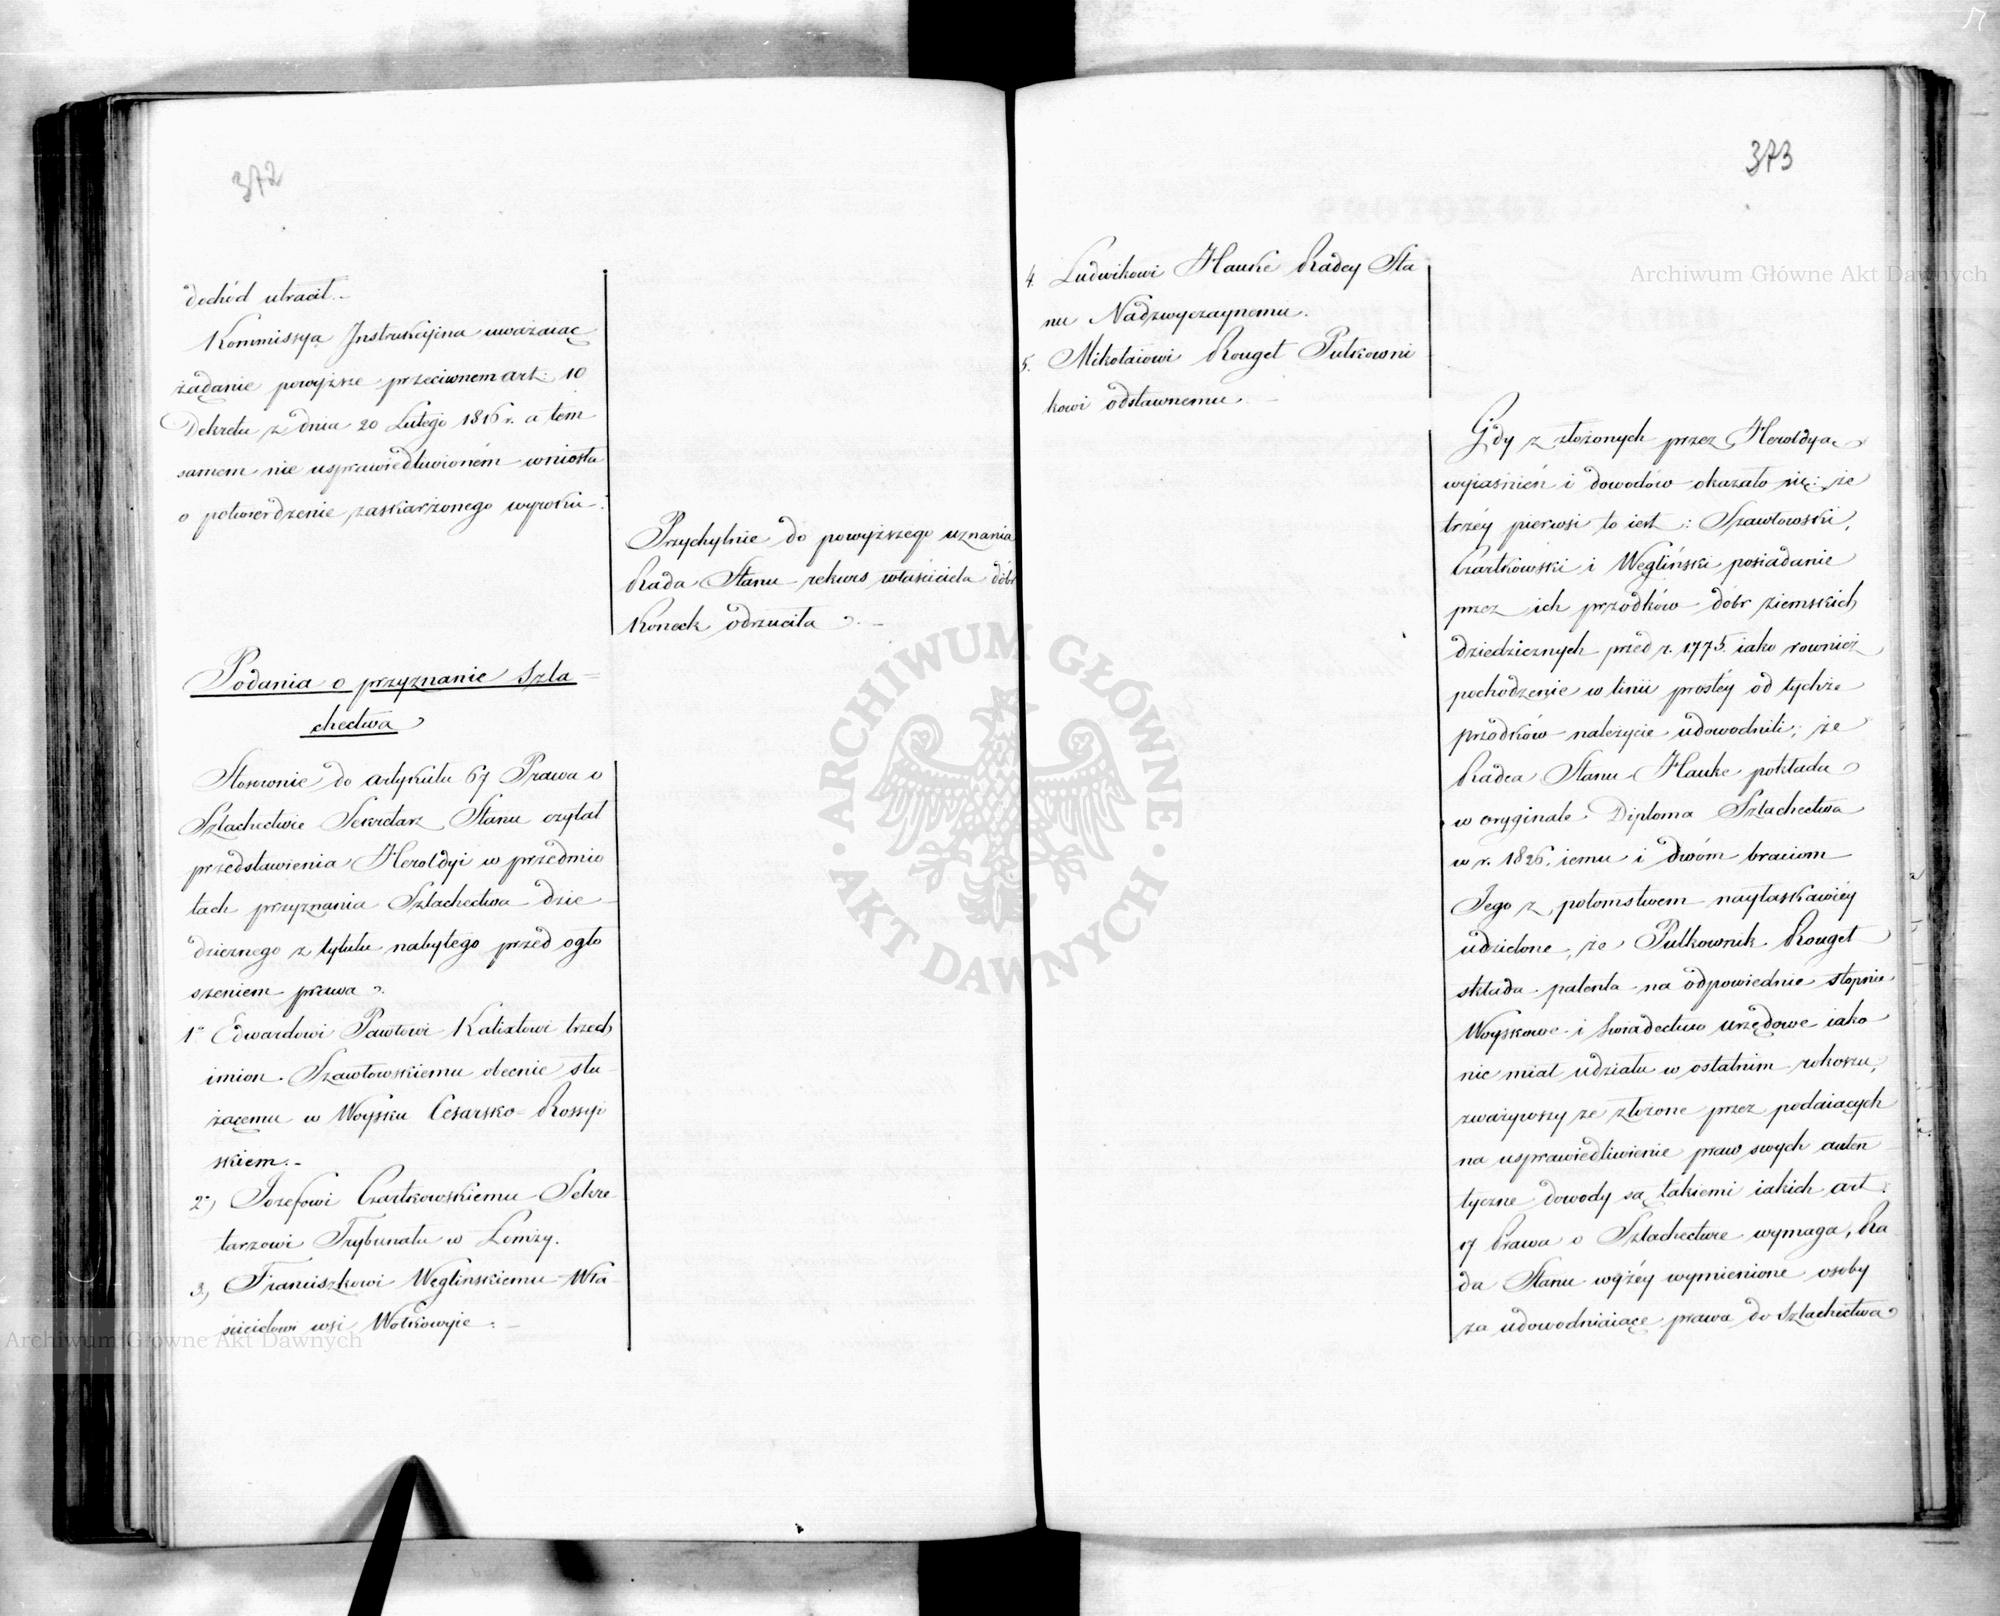 372
dochód utracił.
Kommissya Instrukcyina uważaiąc
żądanie powyższe przeciwnem art: 10
Dekretu z dnia 20 Lutego 1816 r. a tem
samem nie usprawiedliwioném wniosła
o potwierdzenie zaskarżonego wyroku.
Przychylnie do powyższego uznania
Rada Stanu rekurs właściciela dóbr
Koneck odrzuciła.
Podania o przyznanie Szla=
chectwa
Stosownie do artykułu 67 Prawa o
Szlachectwie Sekretarz Stanu czytał
przedstawienia Heroldyi w przedmio
tach przyznania Szlachectwa dzie
dzicznego z tytułu nabytego przed ogło
szeniem prawa.
1° Edwardowi Pawłowi Kalixtowi trzech
imion Szawłowskiemu obecnie słu
żącemu w Woysku Cesarsko-Rossyi
skiem.
2°, Jozefowi Czartkowskiemu Sekre
tarzowi Trybunału w Łomży.
3, Franciszkowi Węglinskiemu Wła
ścicielowi wsi Wołkowyie.
373
4. Ludwikowi Hauke Radcy Sta
nu Nadzwyczaynemu.
5. Mikołaiowi Rouget Pułkowni
kowi odstawnemu.
Gdy z złożonych przez Heroldyą
wyiaśnień i dowodów okazało się: że
trzéy pierwsi to iest: Szawłowski,
Czartkowski i Węgliński posiadanie
przez ich przodków dóbr ziemskich
dziedzicznych przed r. 1775. iako rownież
pochodzenie w linii prostéy od tychże
przodków należycie udowodnili; że
Radca Stanu Hauke pokłada
w oryginale Diploma Szlachectwa
w r. 1826. iemu i dwóm braciom
Jego z potomstwem nayłaskawiéy
udzielone, że Pułkownik Rouget
składa patenta na odpowiednie stopnie
Woyskowe i świadectwo urzędowe iako
nie miał udziału w ostatnim rokoszu,
zważywszy że złożone przez podaiących
na usprawiedliwienie praw swych auten
tyczne dowody są takiemi iakich art:
17 Prawa o Szlachectwie wymaga, Ra
da Stanu wyżéy wymienione osoby
za udowodniaiące prawa do Szlachectwa
Archiwum Główne Akt Dawnych
Archiwum Główne Akt Dawnych
ARCHIWUM GŁÓWNE AKT DAWNYCH